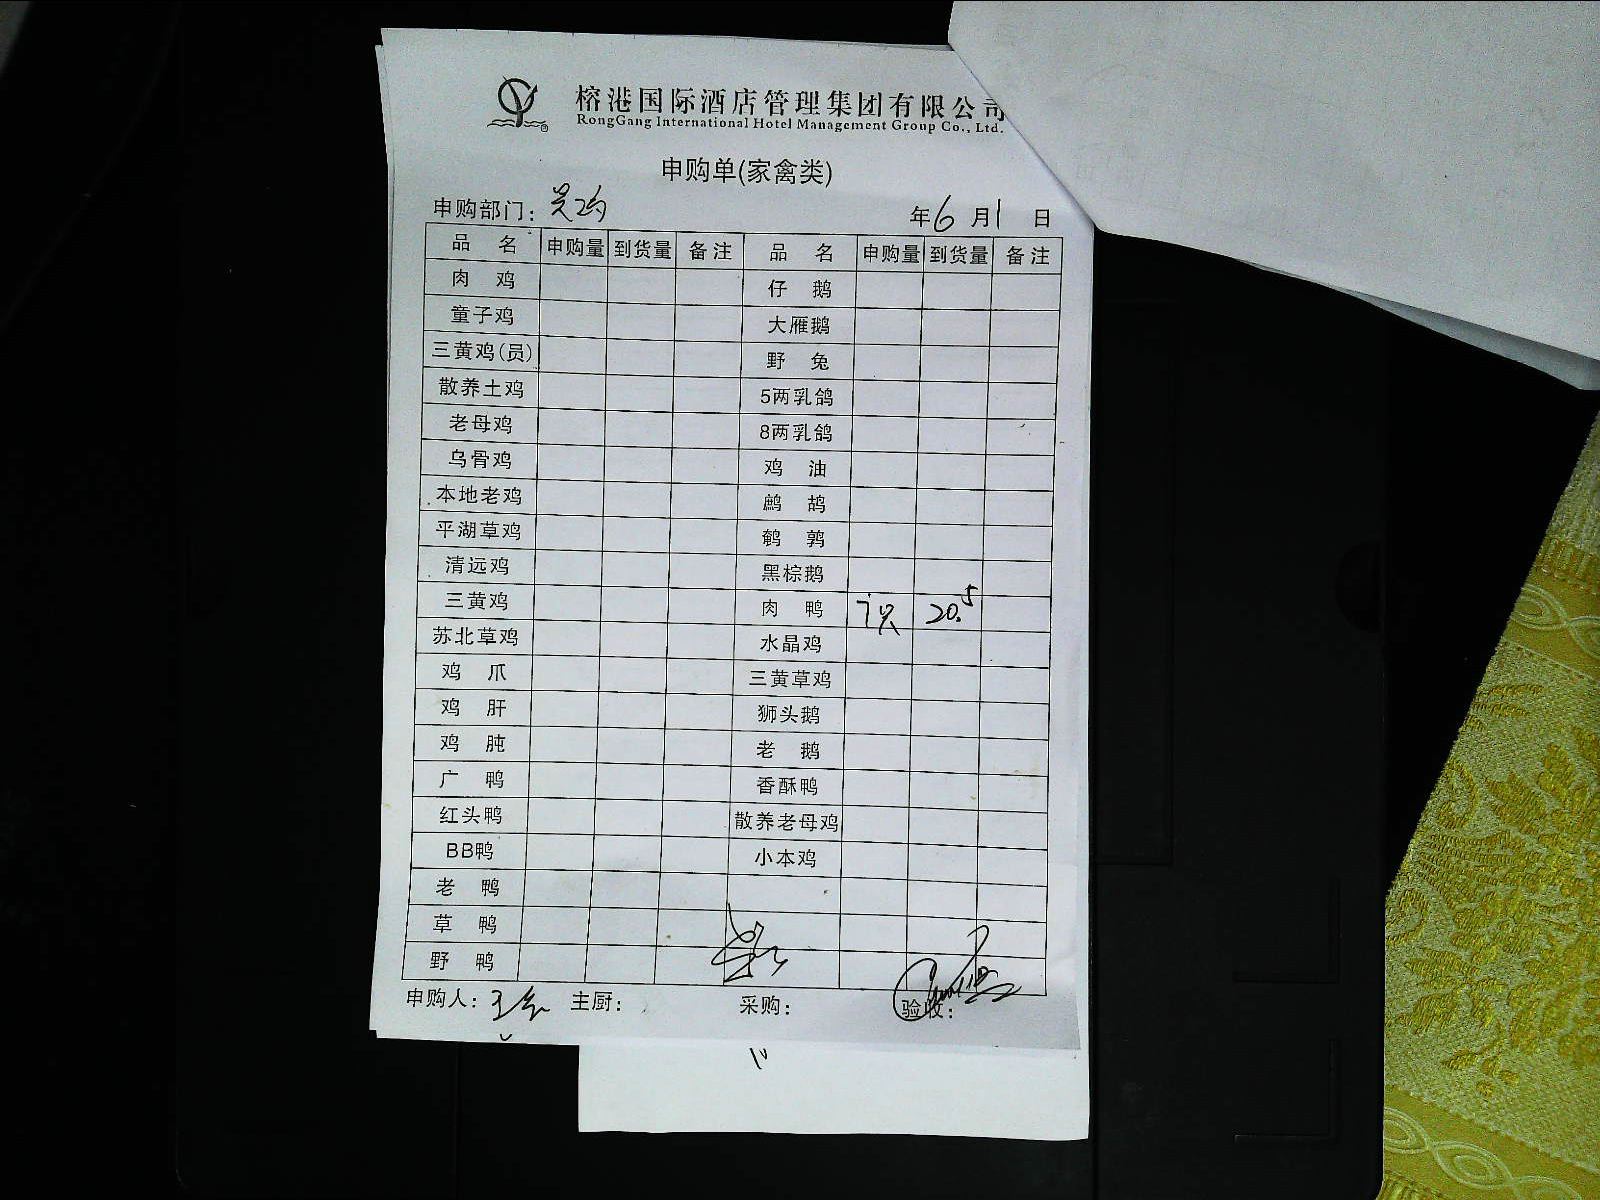 榕港国际酒店管理集团有限公司
RongGang International Hotel Management Group Co., Ltd.
申购单(家禽类)
申购部门：
年6月1日
品名 申购量 到货量 备注 品名 申购量 到货量 备注
肉鸡 仔鹅
童子鸡 大雁鹅
三黄鸡(员) 野兔
散养土鸡 5两乳鸽
老母鸡 8两乳鸽
乌骨鸡 鸡油
本地老鸡 鹧鸪
平湖草鸡 鹌鹑
清远鸡 黑棕鹅
三黄鸡 肉鸭 7只 20.5
苏北草鸡 水晶鸡
鸡爪 三黄草鸡
鸡肝 狮头鹅
鸡肫 老鹅
广鸭 香酥鸭
红头鸭 散养老母鸡
BB鸭 小本鸡
老鸭
草鸭
野鸭
申购人： 主厨： 采购： 验收：